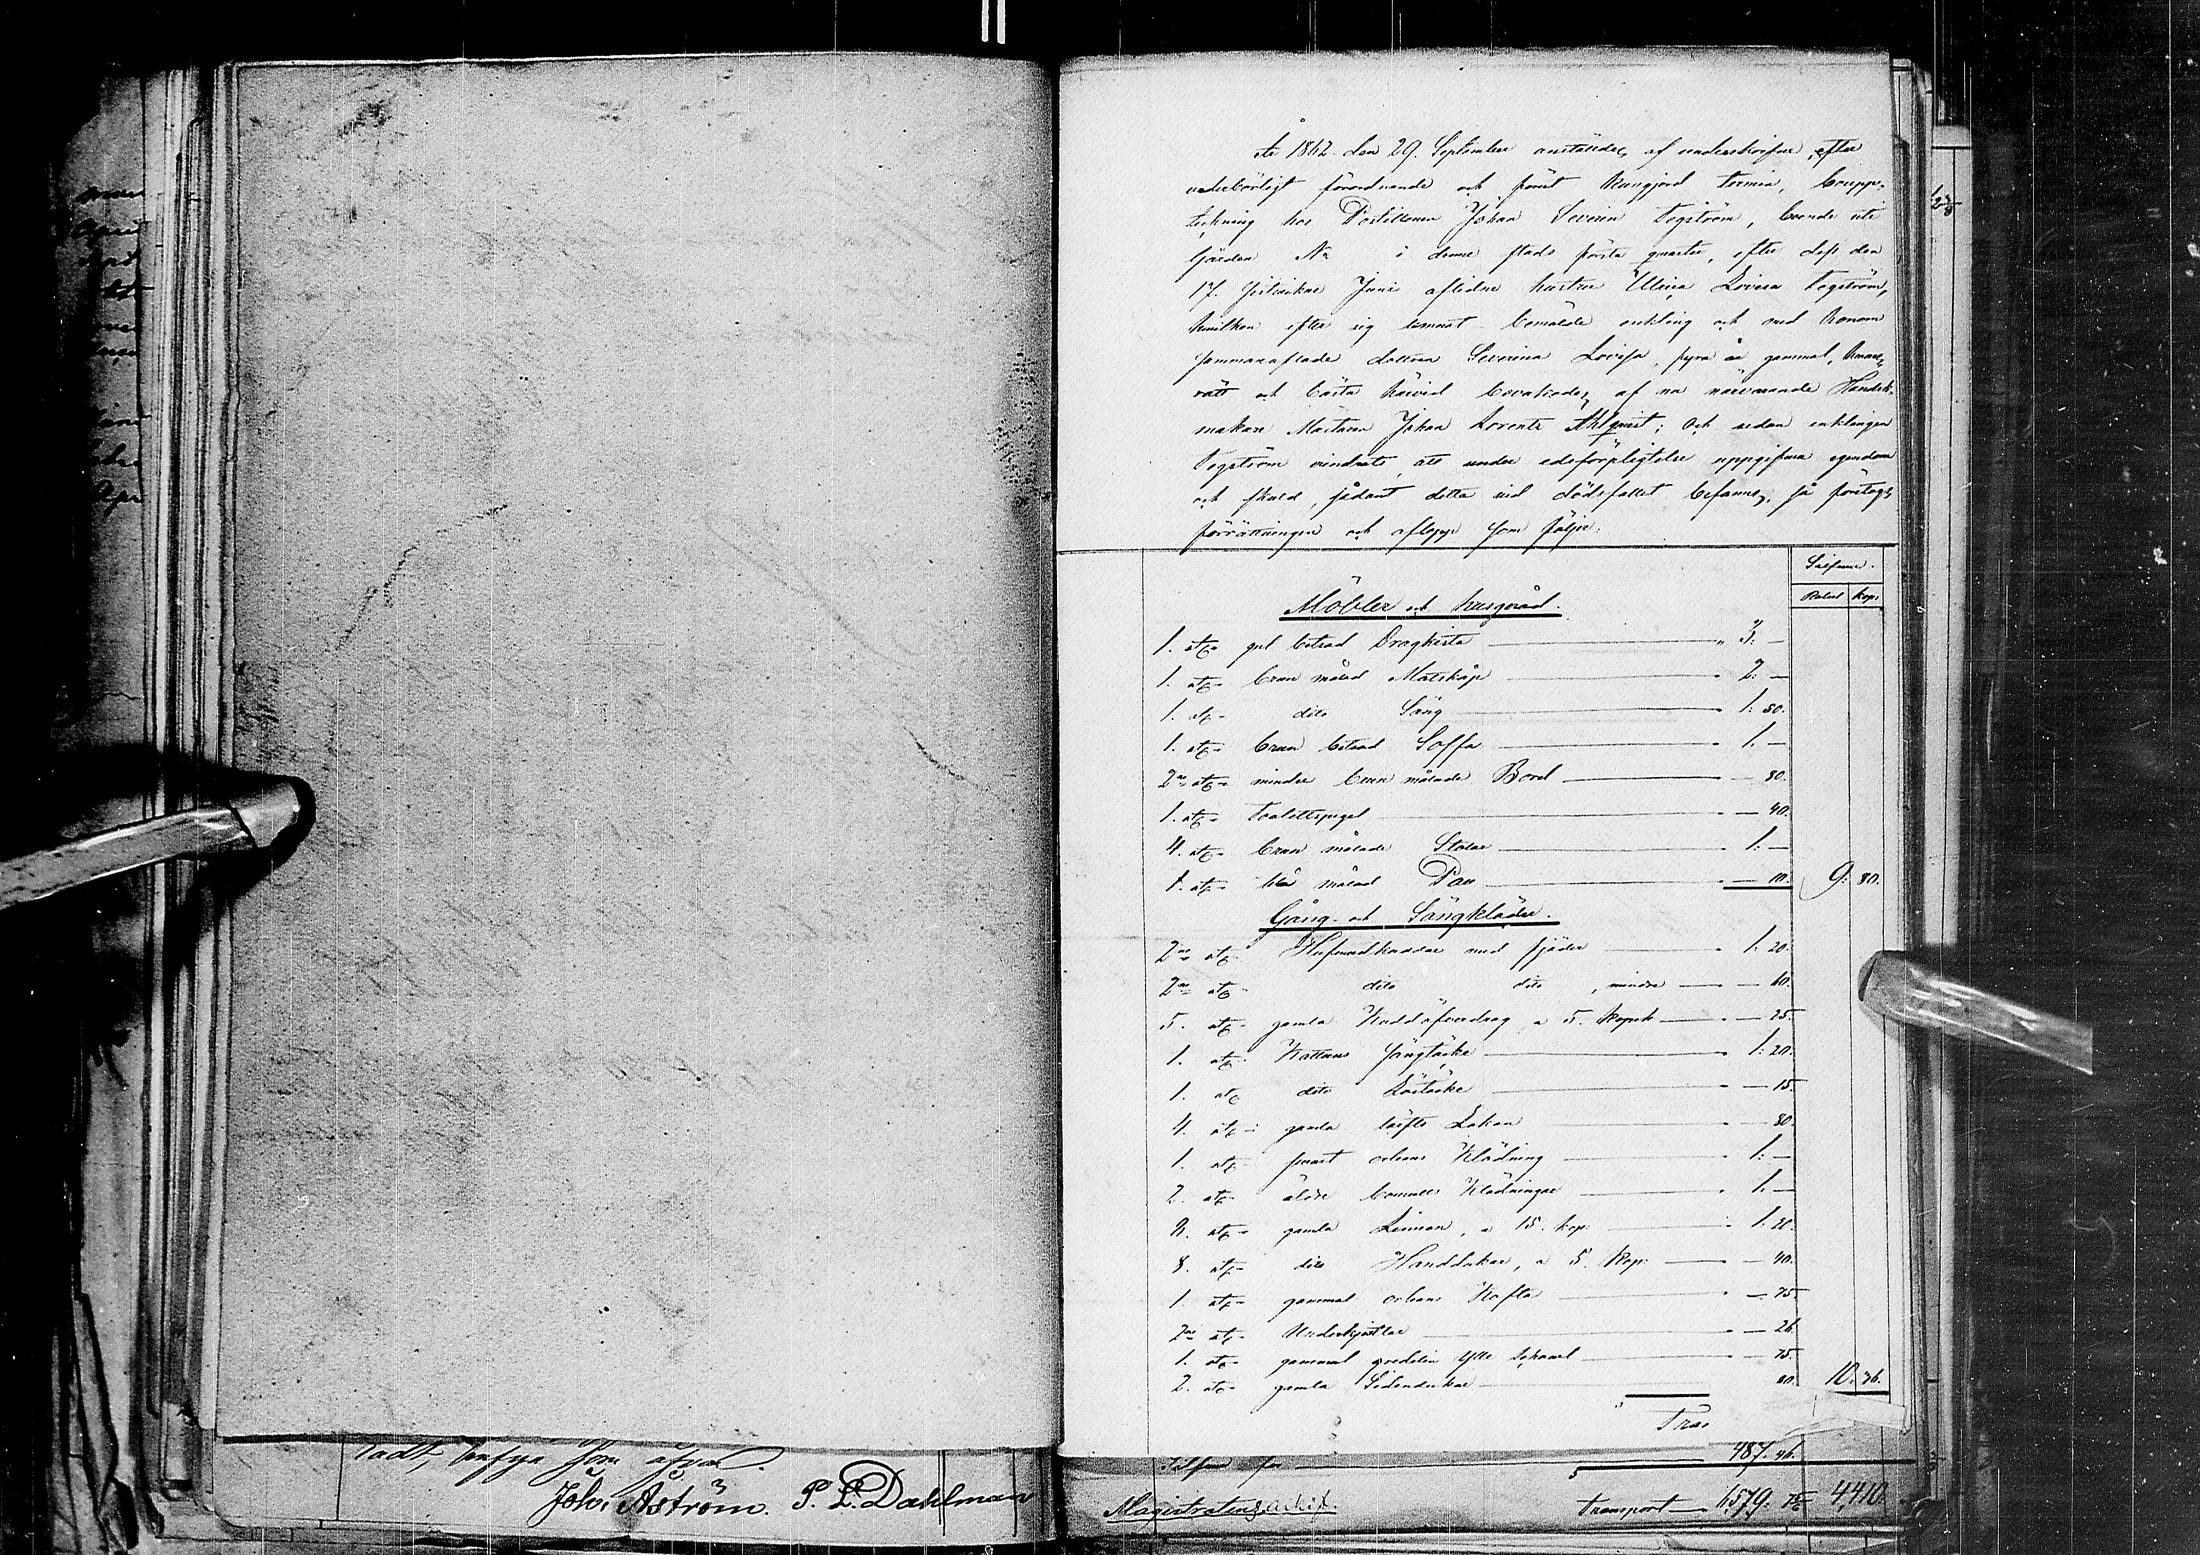 År 1862 den 29. September anställdes af undeskrifne, efter
vederbörligt förordnande och förut kungjord termin, boupp-
teckning hos Postillionen Johan Severin Tegström, boende uti
gården No i denne stads första qvarter, efter dess den
17. sistledne Juni aflidne hustru Ulrica Lovisa Tegström,
hvilken efter sig lemnat bemälde enkling och med honom
sammanaflade dottren Severina Lovisa, fyra år gammal, hvars
rätt och bästa härvid bevakades af nu närvarande Handsk-
makare Mästaren Johan Lorentz Ahlqvist; Och sedan enklingen
Tegström erindrats, att under edsförpligtelse uppgifva egendom
och skuld, sådant detta vid dödsfallet befanns, så företogs
förrättningen och aflopp som följer:
Silfver.
Rubel kop.
Möbler och husgeråd.
1. st. gul betsad Dragkista 3: —
1. st. brun målad Matskåp 2: —
1. st. dito Säng 1: 50.
1. st. brun betsad Soffa 1. —
2ne st. mindre brun målade Bord — 80.
1. st. Toalettspegel — 40.
4. st. brun målade Stolar 1: —
1. st. blå målad — 10. 9: 80.
Gång- och Sängkläder.
2ne st. Hufvudkuddar med fjäder 1: 20.
2ne st. dito dito, mindre — 60.
5. st. gamla Kuddöfverdrag a 5. kopek — 25.
1. st. Kattuns Sängtäcke 1: 20.
1. st. dito — 15.
4. st. gamla Lakan — 80.
1. st. svart orleans Klädning 1: —
2. st. äldre bomulls Klädningar 1. —
8. st. gamla Linnen, a 15. kop. 1: 20.
8. st. dito Handdukar, a 5. kop. — 40.
1. st. gammal orleans Kofta — 75.
2ne st. Underkjortlar — 26.
1. st. gammal gredelin ylle Schawl — 75.
2. st. gamla Sidendukar 80. 10: 36.
Tras
487. 46.
ladt, betyga som ofvan.
Joh. Åström. P. L. Dahlman
Magistratens arkif.
Transport 1,579: 75 4,410